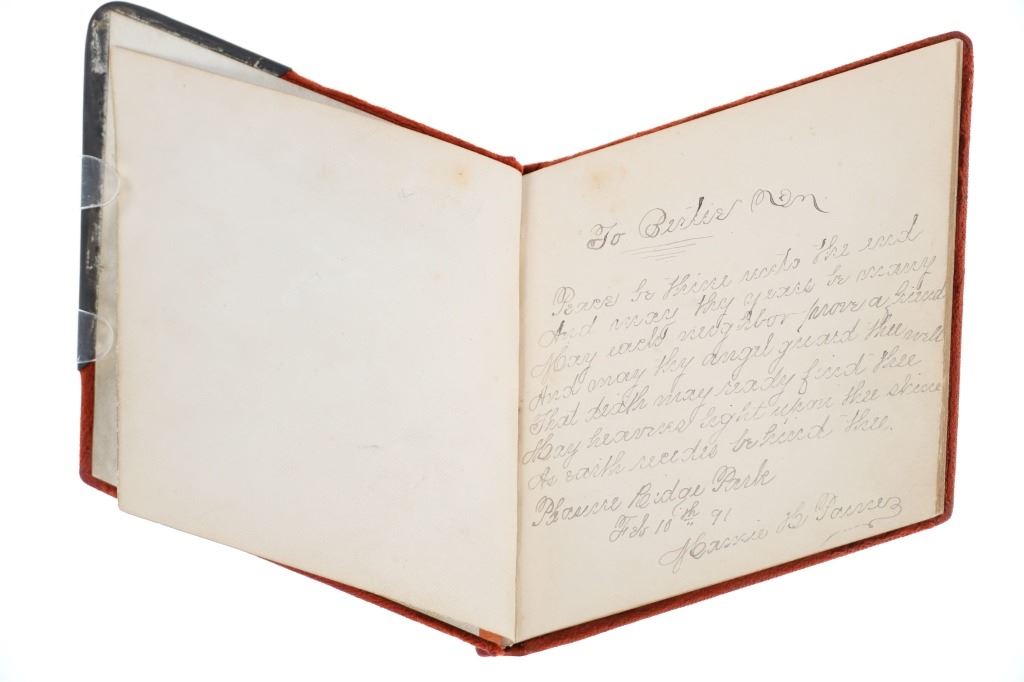 To Bertie
Peace be thine unto the end
And may thy years be many
May each neighbor prove a friend
And may thy angel guard thee well
That death may ready find thee
May heavens light upon thee shine
As earth recedes behind thee.
Pleasure Ridge Park
Feb 10th 91
Mamie B Painez